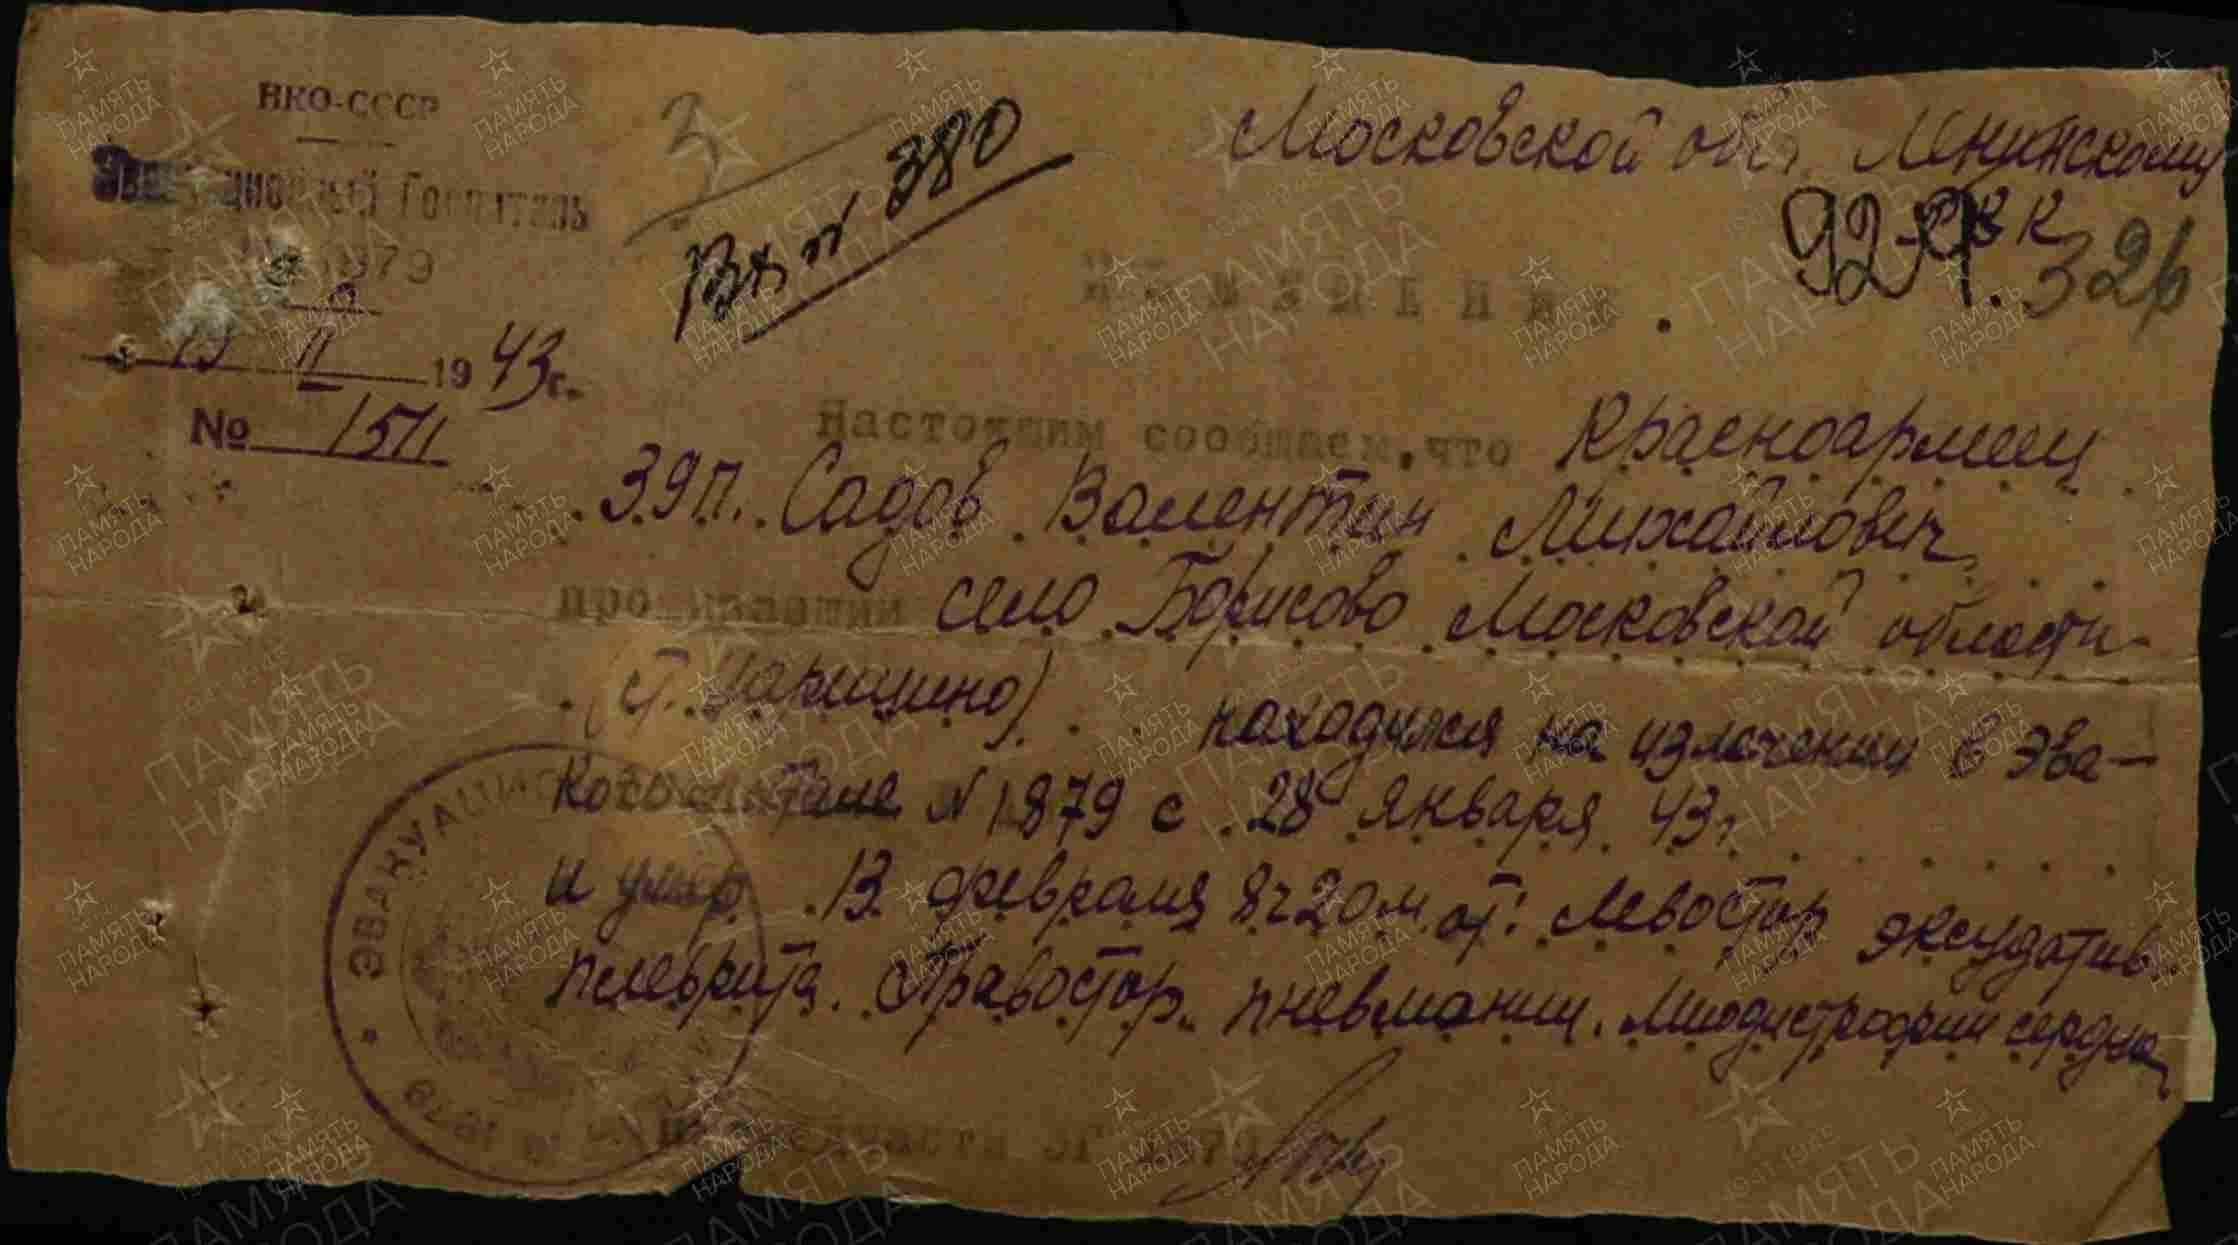 НКО-СССР
Эвакуационный Госпиталь
1879
13 II 1943 г.
№ 1511
3
Вх № 380
Московской обл. Ленинскому
РВК
929. 326
Извещение.
Настоящим сообщаем, что Красноармеец
39п. Садов Валентин Михайлович
проживавший село Борисово Московской области
(ст. Царицино). находился на излечении в Эва-
когоспитале N 1879 с 28 января 43г.
и умер 13 февраля 8ч 20м от: левостор эксудатив.
плеврита. Правостор. пневмании. Миодистрофии сердца
части ЭГ 1879
ЭВАКУАЦИОН 1879
ПАМЯТЬ НАРОДА
1941-1945